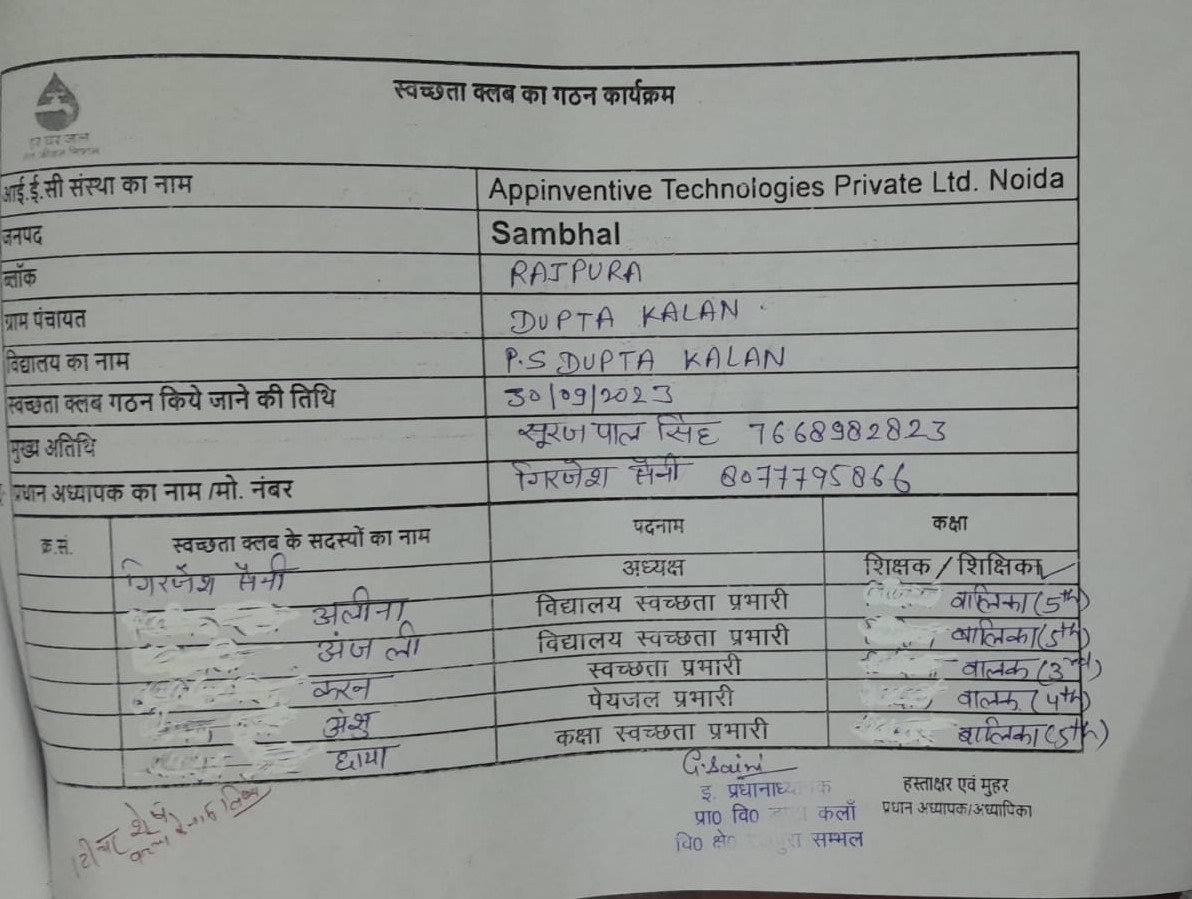 स्वच्छता क्लब का गठन कार्यक्रम
हर घर जल
जल जीवन मिशन
आई.ई.सी संस्था का नाम Appinventive Technologies Private Ltd. Noida
जनपद Sambhal
ब्लॉक RAJPURA
ग्राम पंचायत DUPTA KALAN
विद्यालय का नाम P.S DUPTA KALAN
स्वच्छता क्लब गठन किये जाने की तिथि 30/09/2023
मुख्य अतिथि सूरज पाल सिंह 7668982823
प्रधान अध्यापक का नाम /मो. नंबर गिरजेश सैनी 8077795866
क्र.सं. स्वच्छता क्लब के सदस्यों का नाम पदनाम कक्षा
गिरजेश सैनी अध्यक्ष शिक्षक / शिक्षिका
अलीना विद्यालय स्वच्छता प्रभारी बालिका (5th)
अंजली विद्यालय स्वच्छता प्रभारी बालिका (5th)
करन स्वच्छता प्रभारी बालक (3rd)
अंशु पेयजल प्रभारी बालक (4th)
छाया कक्षा स्वच्छता प्रभारी बालिका (5th)
G.Saini
इ. प्रधानाध्यापक
प्रा0 वि0 कलाँ
वि0 क्षे0 सम्भल
हस्ताक्षर एवं मुहर
प्रधान अध्यापक/अध्यापिका